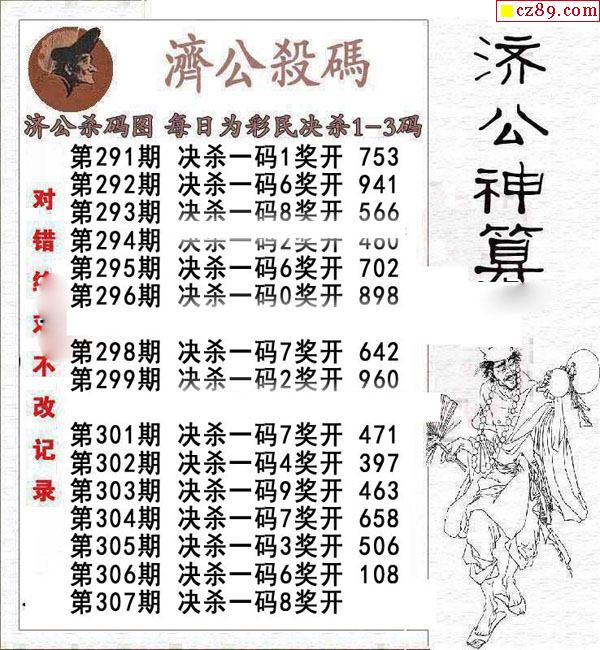 cz89.com
濟公殺碼
济公杀码图 每日为彩民决杀1-3码
第291期 决杀一码1奖开 753
第292期 决杀一码6奖开 941
第293期 决杀一码8奖开 566
第294期 决杀一码2奖开 460
第295期 决杀一码6奖开 702
第296期 决杀一码0奖开 898
第298期 决杀一码7奖开 642
第299期 决杀一码2奖开 960
第301期 决杀一码7奖开 471
第302期 决杀一码4奖开 397
第303期 决杀一码9奖开 463
第304期 决杀一码7奖开 658
第305期 决杀一码3奖开 506
第306期 决杀一码6奖开 108
第307期 决杀一码8奖开
对错 不改记录
济公神算